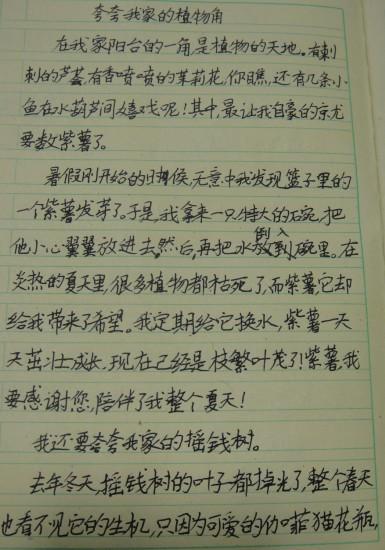 夸夸我家的植物角
在我家阳台的一角是植物的天地。有刺
刺的芦荟,有香喷喷的茉莉花,你瞧,还有几条小
鱼在水葫芦间嬉戏呢!其中,最让我自豪的
要数紫薯了。
暑假刚开始的时候,无意中我发现篮子里的
一个紫薯发芽了。于是,我拿来一只特大的碗,把
他小心翼翼放进去,然后,再把水倒入碗里。在
炎热的夏天里,很多植物都枯死了,而紫薯它却
给我带来了希望。我定期给它换水,紫薯一天
天茁壮成长,现在已经是枝繁叶茂了!紫薯,我
要感谢您,陪伴了我整个夏天!
我还要夸夸我家的摇钱树。
去年冬天,摇钱树的叶子都掉光了,整个春天
也看不见它的生机,只因为可爱的加菲猫花瓶,